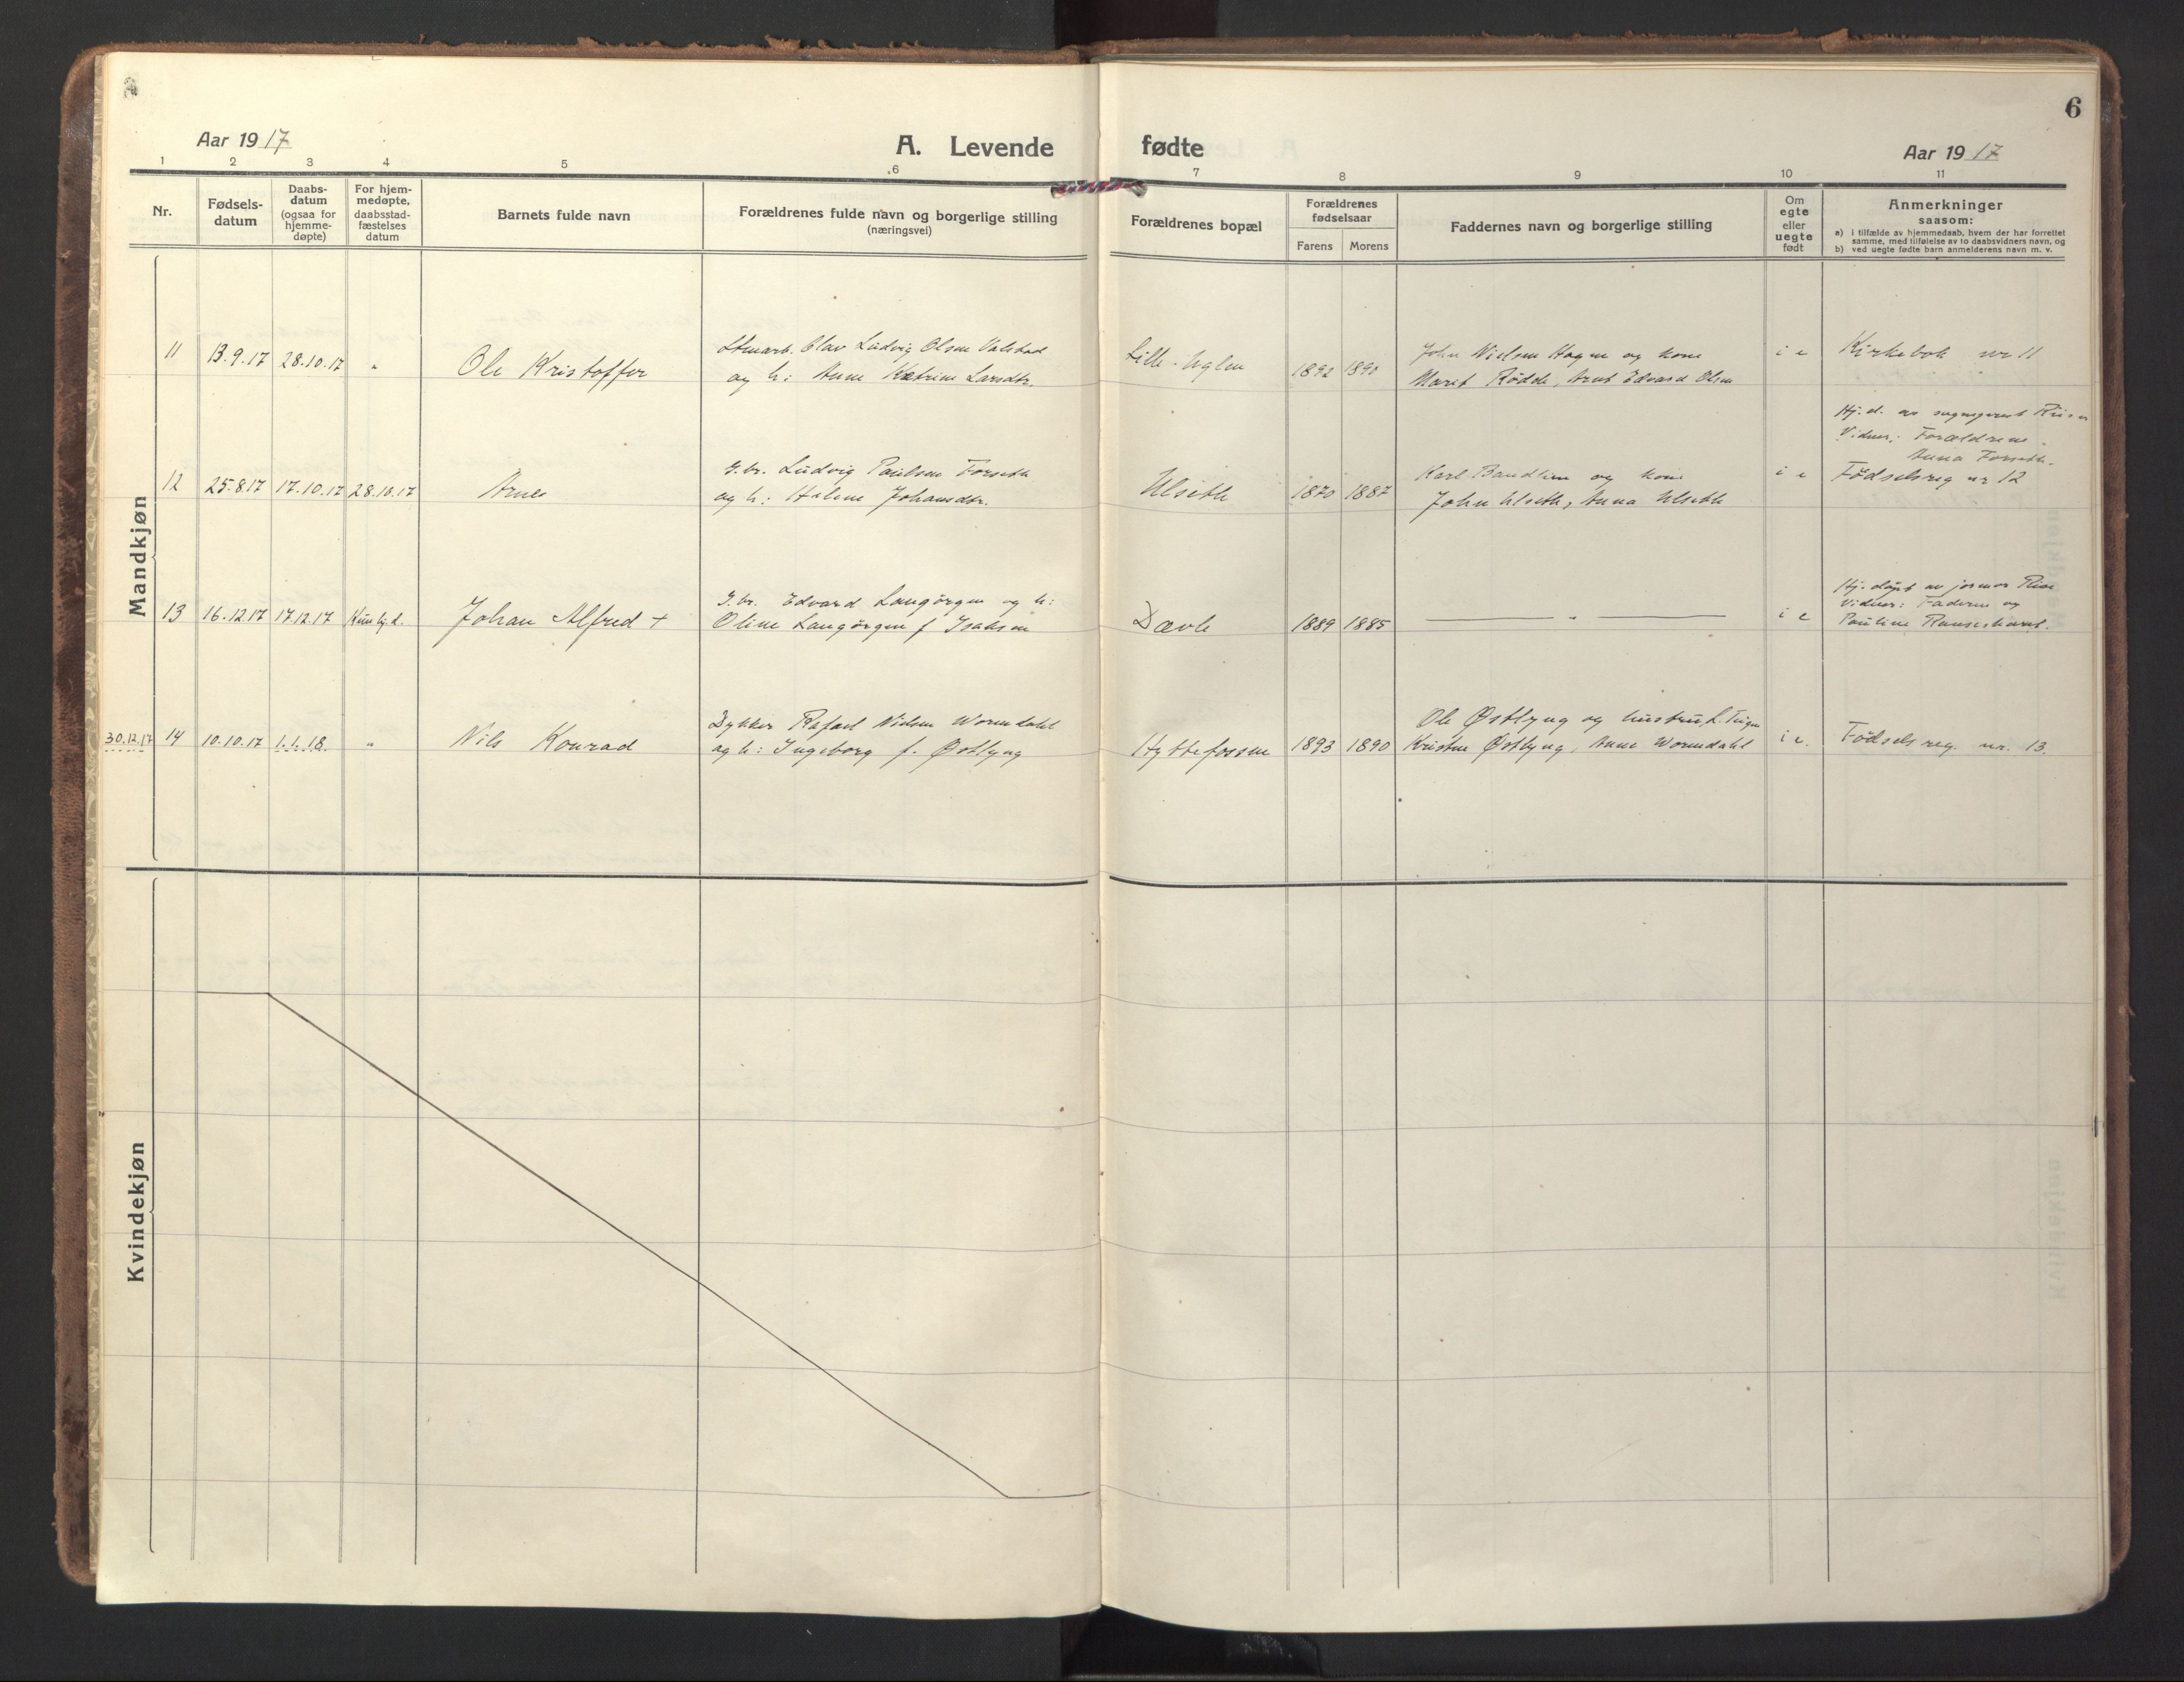 6
Aar 1917 A. Levende fødte Aar 1917
1 2 3 4 5 6 7 8 9 10 11
Nr.
Fødsels-
datum
Daabs-
datum
(ogsaa for
hjemme-
døpte)
For hjem-
medøpte,
daabsstad-
fæstelses
datum
Barnets fulde navn
Forældrenes fulde navn og borgerlige stilling
(næringsvei)
Forældrenes bopæl
Forældrenes
fødselsaar
Farens Morens
Faddernes navn og borgerlige stilling
Om
egte
eller
uegte
født
Anmerkninger
saasom:
a) i tilfælde av hjemmedaab, hvem der har forrettet
samme, med tilføielse av to daabsvidners navn, og
b) ved uegte fødte barn anmelderens navn m. v.
Mandkjøn
11 13.9.17 28.10.17 " Ole Kristoffer
Olav Ludvig Olsen Valstad
og h: Anne Katrine Larsdtr.
Lille-Uglen 1892 1890
John Nielsen Hagen og kone
Marit Rødde, Arnt Edvard Olsen
i e Kirkebok nr 11
12 25.8.17 17.10.17 28.10.17 Arne
G.br. Ludvig Paulsen Forseth
og h: Helene Johansdtr.
Ulseth 1870 1887
Karl Bandlien og kone
John Ulseth, Anna Ulseth
i e
Hj.d. av sogneprest
Vidner: Forældrene.
Anna Forseth.
Fødselsreg nr 12
13 16.12.17 17.12.17 Kun hj.d. Johan Alfred +
G.br. Edvard Langørgen og h:
Oline Langørgen f Isaksen
Dævle 1889 1885 — " — i e
Hj. døpt av jormor
Vidner: Faderen og
Pauline
30.12.17 14 10.10.17 1.1.18. " Nils Konrad
Dykker Rafael Nielsen Wormdahl
og h: Ingeborg f. Østlyng
Hyttefossen 1893 1890
Ole Østlyng og hustru,
Kristine Østlyng, Anne Wormdahl
i e. Fødselsreg. nr. 13.
Kvindekjøn